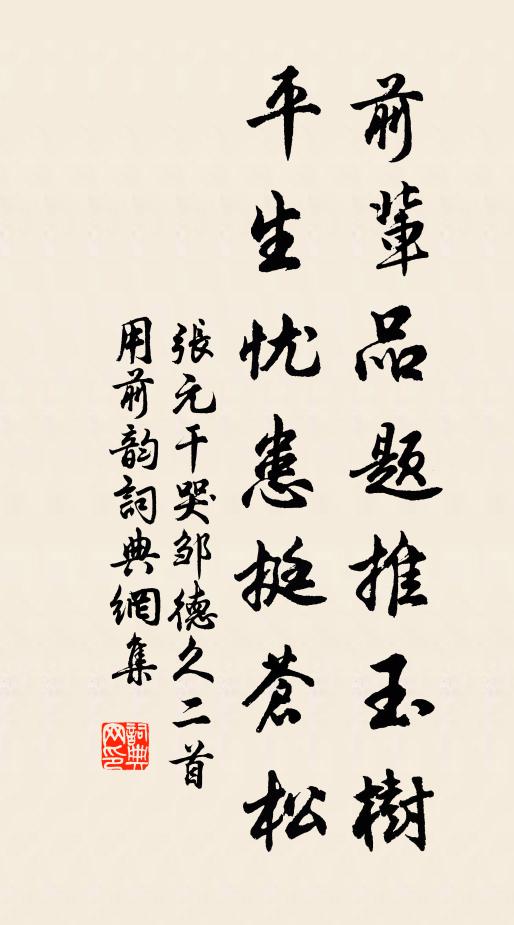 前輩品题推玉樹
平生忧患挺蒼松
張元干哭邹德久二首
用前韵詞典網集
詞典网印